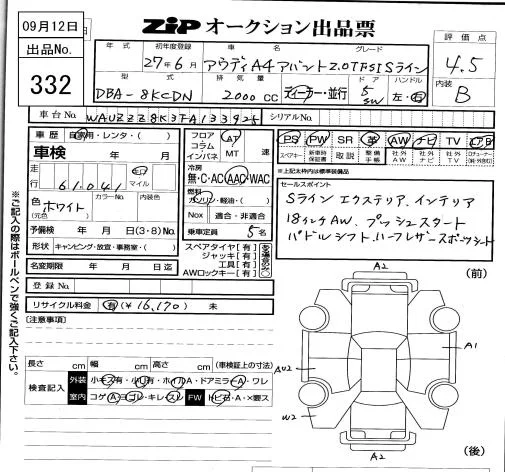 09月12日
出品No.
332
ZIP オークション出品票
評価点
4.5
内装
B
年式 初年度登録 車名 グレード
27年6月 アウディA4アバント2.0TFSI Sライン
型式 排気量 ドア ハンドル
DBA-8KCDN 2000cc ディーラー・並行 5 SW 左・右
車台No. WAUZZZ8K3FA133925 シリアルNo.
車歴 自家用・レンタ・( )
車検 年 月
走行 61,041 km マイル
色(元色) ホワイト カラーNo. 内装色
予備検 年 月 日(3・8)No.
形状 キャンピング・放宣・事務室・( )
名変期限 年 月 日迄
登録No.
リサイクル料金 有(¥16,170) 未
フロア コラム インパネ AT MT 速
冷房 無・C・AC AAC・WAC
燃料 ガソリン・軽油・( )
Nox 適合・非適合
乗車定員 5名
スペアタイヤ[有]
ジャッキ[有]
工具[有]
AWロックキー[有]
PS PW SR 革 AW ナビ TV
スペアキー 新車時保証書 取説 整備手帳 社外AW 社外ナビ 社外TV
※上記太枠内は標準装備品
セールスポイント
Sライン エクステリア、インテリア
18インチAW、プッシュスタート
パドルシフト、ハーフレザースポーツシート
[注意事項]
長さ cm 幅 cm 高さ cm (車検証上の寸法)
検査記入 外装 小キズ有・小凹有・ホイルA・ドアミラーA・ワレ
室内 コゲA・ヨゴレ・キレ・スレ FW トビ石・A・×要ス
A2 (前)
A1
AU2
W2
A2 (後)
※ご記入の際はボールペンで強くご記入下さい。